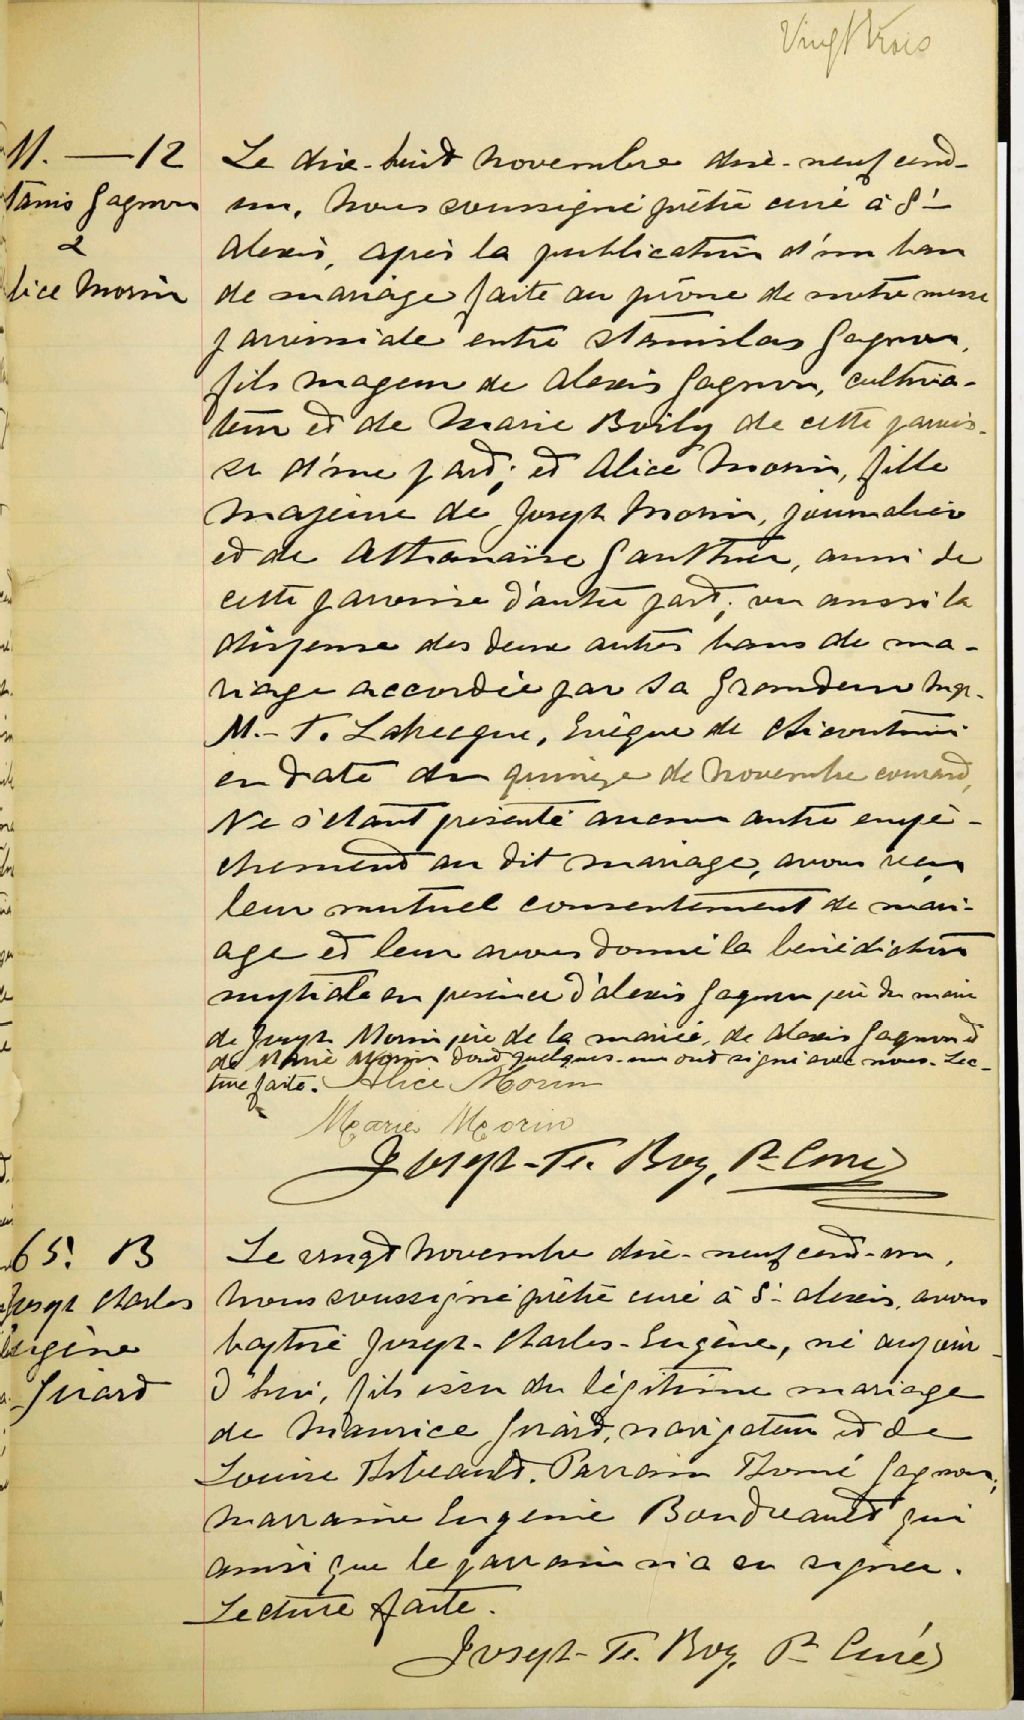 Vingt trois
M. — 12
tanis Gagnon
&
lice Morin
Le dix-huit novembre dix-neuf cent-
un, nous soussigné prêtre curé à St-
Alexis, après la publication d'un ban
de mariage faite au prône de notre messe
paroissiale entre Stanislas Gagnon,
fils mageur de Alexis Gagnon, cultiva-
teur et de Marie Boily de cette parois-
se d'une part; et Alice Morin, fille
majeure de Joseph Morin, journalier
et de Athanaïse Gauthier, aussi de
cette paroisse d'autre part; vu aussi la
dispense des deux autres bans de ma-
riage accordée par Sa Grandeur Mgr.
M.-T. Labrecque, Evêque de Chicoutimi
en date du quinze de novembre courant,
Ne s'étant présenté aucun autre empê-
chement au dit mariage, avons reçu
leur mutuel consentement de mari-
age et leur avons donné la bénédiction
nuptiale en présence d'Alexis Gagnon père du marié
de Joseph Morin père de la mariée, de Alexis Gagnon et
de Marie Morin dont quelques-uns ont signé avec nous. Lec-
ture faite. Alice Morin
Marie Morin
Joseph-Te. Roy, Ptre Curé
65. B
Joseph Charles
Eugène
Girard
Le vingt novembre dix-neuf cent-un,
nous soussigné prêtre curé à St-Alexis, avons
baptisé Joseph-Charles-Eugène, né aujour-
d'hui, fils issu du légitime mariage
de Maurice Girard, navigateur et de
Louise Thibeault. Parrain Thomé Gagnon;
marraine Eugenie Boudreault qui
ainsi que le parrain n'a su signer.
Lecture faite.
Joseph-Te. Roy, Ptre Curé